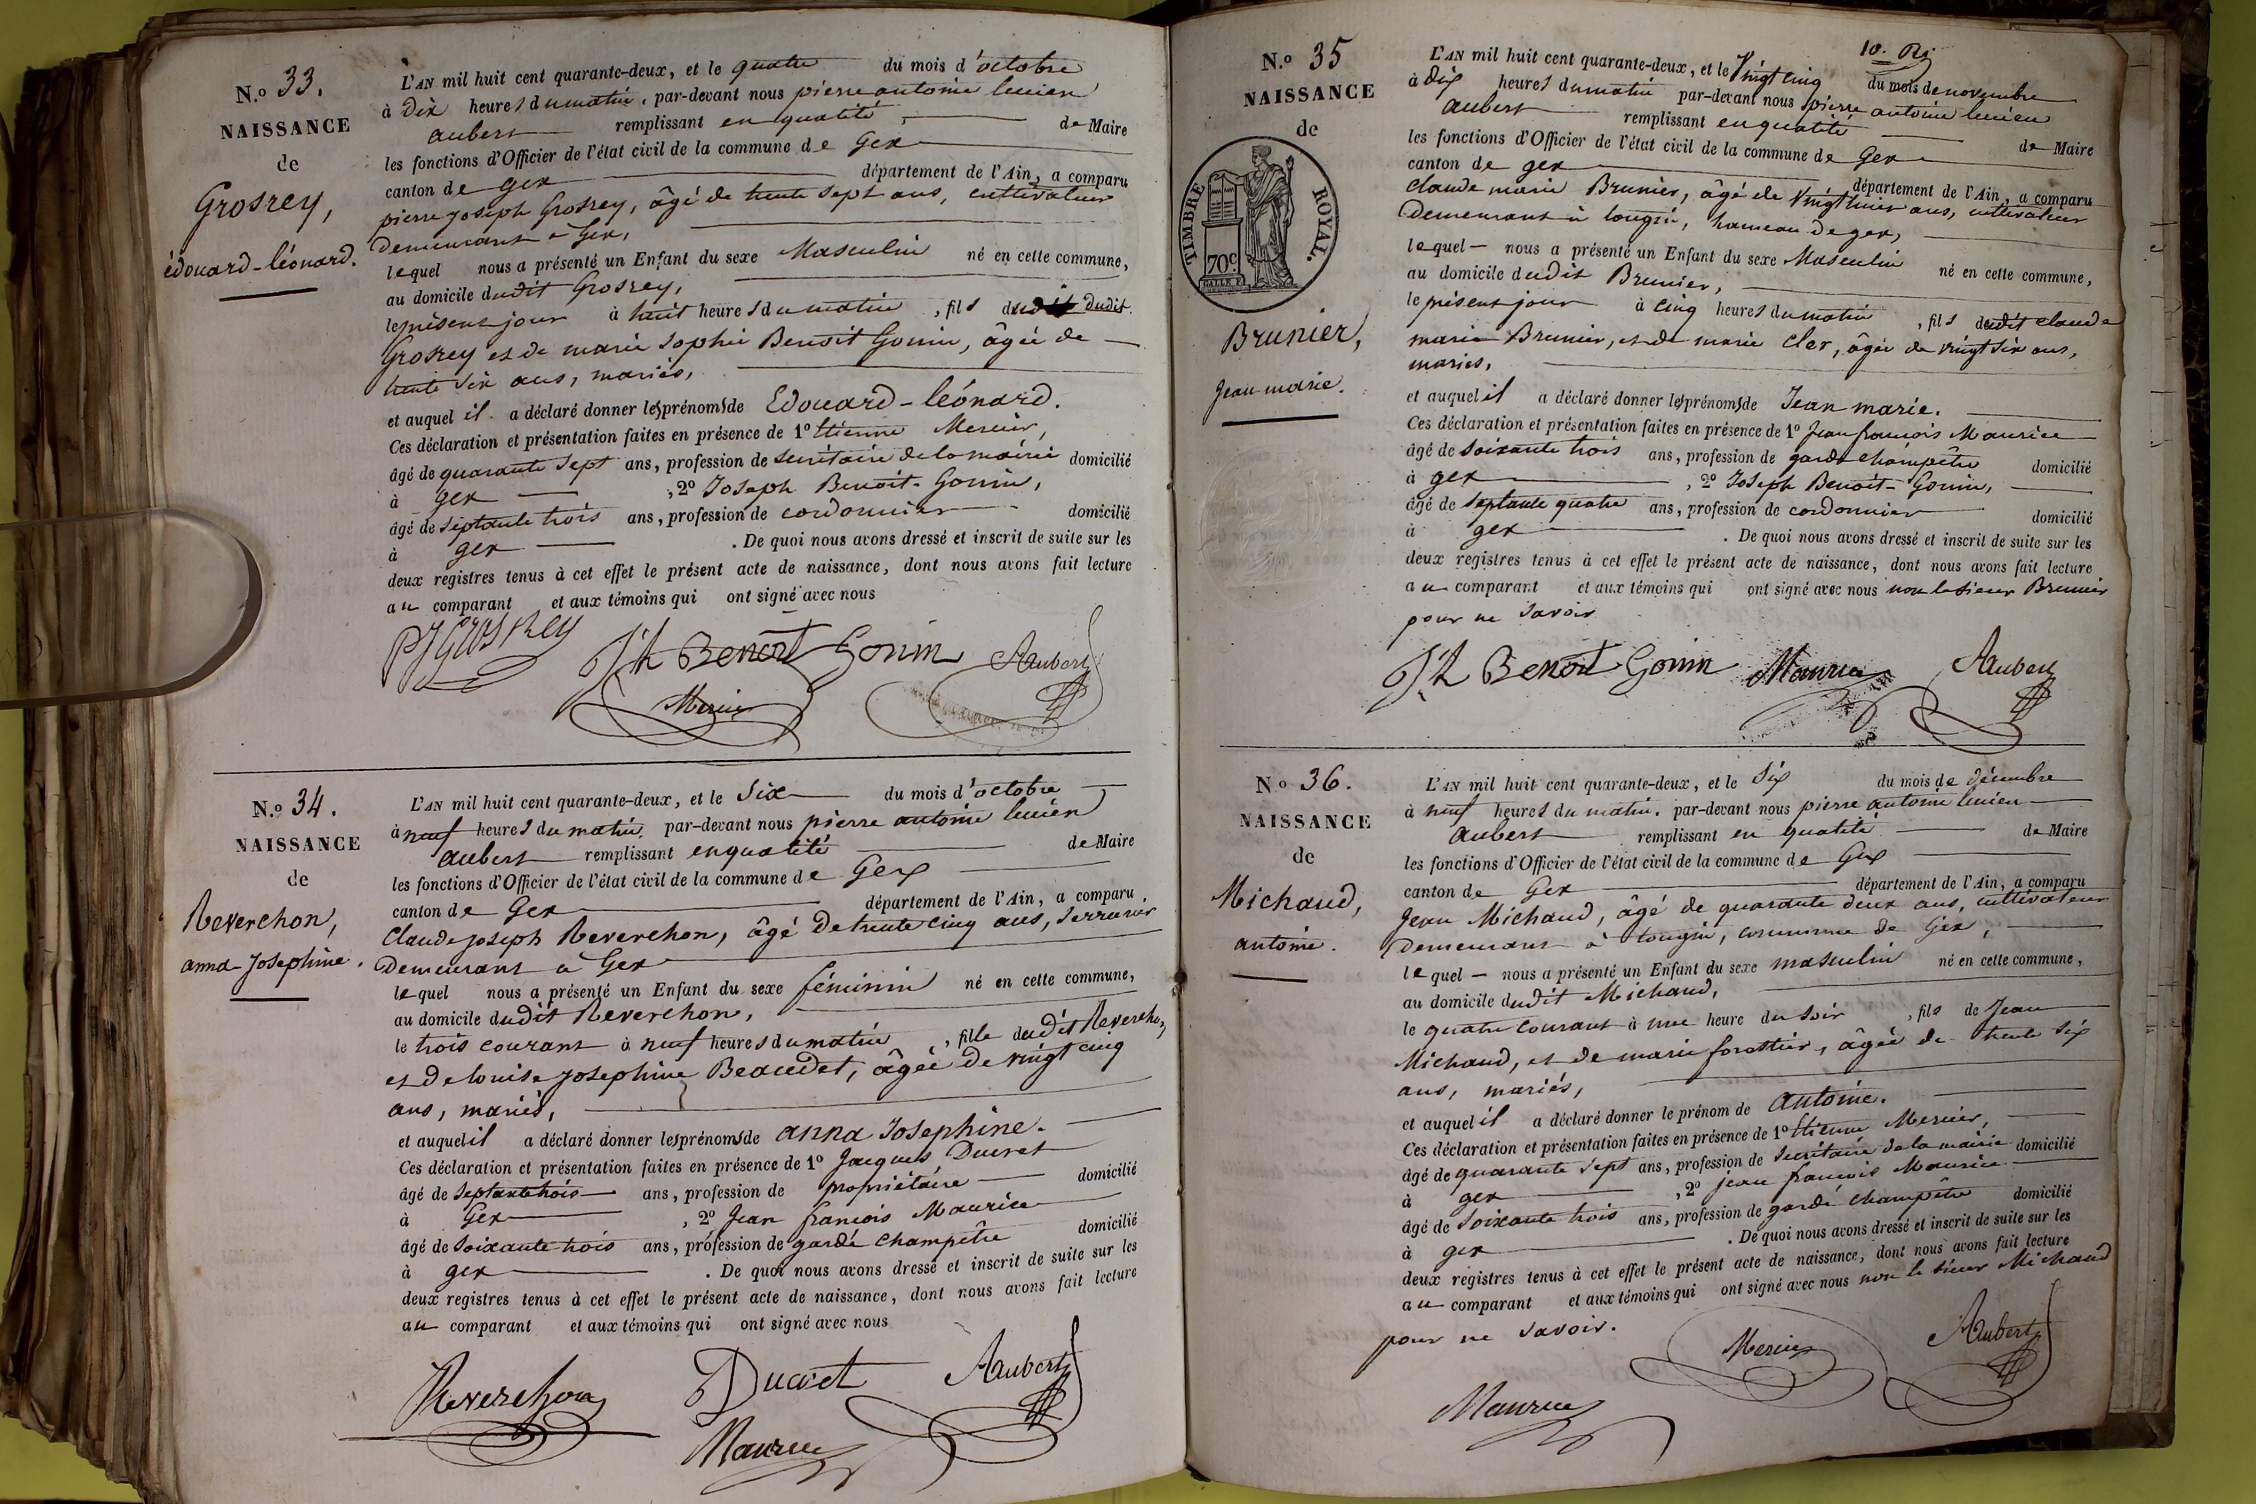 N.º 33.
NAISSANCE
de
Grosrey,
édouard-léonard.
L'AN mil huit cent quarante-deux, et le quatre du mois d'octobre
à dix heures du matin, par-devant nous pierre antoine lucien
aubert remplissant en qualité de Maire
les fonctions d'Officier de l'état civil de la commune de Gex
canton de gex département de l'Ain, a comparu
pierre joseph Grosrey, âgé de trente sept ans, cultivateur
demeurant à Gex,
lequel nous a présenté un Enfant du sexe Masculin né en cette commune,
au domicile dudit Grosrey,
le présent jour à huit heures du matin, fils dudit
Grosrey et de marie sophie Benoit Gonin, âgée de
trente six ans, mariés,
et auquel il a déclaré donner les prénoms de Edouard-léonard.
Ces déclaration et présentation faites en présence de 1º Etienne Mercier,
âgé de quarante sept ans, profession de secrétaire de la mairie domicilié
à gex, 2º Joseph Benoit-Gonin,
âgé de septante trois ans, profession de cordonnier domicilié
à gex. De quoi nous avons dressé et inscrit de suite sur les
deux registres tenus à cet effet le présent acte de naissance, dont nous avons fait lecture
au comparant et aux témoins qui ont signé avec nous
PJ Grosrey Jh Benoit Gonin Aubert
Mercier
N.º 34.
NAISSANCE
de
Reverchon,
anna-Josephine.
L'AN mil huit cent quarante-deux, et le six du mois d'octobre
à neuf heures du matin, par-devant nous pierre antoine lucien
aubert remplissant en qualité de Maire
les fonctions d'Officier de l'état civil de la commune de Gex
canton de Gex département de l'Ain, a comparu
Claude joseph Reverchon, âgé de trente cinq ans, serrurier
demeurant à Gex
lequel nous a présenté un Enfant du sexe féminin né en cette commune,
au domicile dudit Reverchon,
le trois courant à neuf heures du matin, fille dudit Reverchon,
et de louise josephine Beaudet, âgée de vingt cinq
ans, mariés,
et auquel il a déclaré donner les prénoms de anna Josephine.
Ces déclaration et présentation faites en présence de 1º Jacques Ducret
âgé de septante trois ans, profession de propriétaire domicilié
à Gex, 2º Jean françois Maurice
âgé de soixante trois ans, profession de garde champêtre domicilié
à gex. De quoi nous avons dressé et inscrit de suite sur les
deux registres tenus à cet effet le présent acte de naissance, dont nous avons fait lecture
au comparant et aux témoins qui ont signé avec nous
Reverchon Ducret Aubert
Maurice
10.
N.º 35
NAISSANCE
de
TIMBRE ROYAL.
70c.
Brunier,
Jean-marie.
L'AN mil huit cent quarante-deux, et le vingt cinq du mois de novembre
à dix heures du matin par-devant nous pierre antoine lucien
aubert remplissant en qualité de Maire
les fonctions d'Officier de l'état civil de la commune de Gex
canton de gex département de l'Ain, a comparu
claude marie Brunier, âgé de vingt huit ans, cultivateur
demeurant à tougin, hameau de gex,
lequel nous a présenté un Enfant du sexe Masculin né en cette commune,
au domicile dudit Brunier,
le présent jour à cinq heures du matin, fils dudit claude
marie Brunier, et de marie Cler, âgée de vingt six ans,
mariés,
et auquel il a déclaré donner les prénoms de Jean marie.
Ces déclaration et présentation faites en présence de 1º Jean françois Maurice
âgé de soixante trois ans, profession de garde champêtre domicilié
à gex, 2º Joseph Benoit-Gonin,
âgé de septante quatre ans, profession de cordonnier domicilié
à gex. De quoi nous avons dressé et inscrit de suite sur les
deux registres tenus à cet effet le présent acte de naissance, dont nous avons fait lecture
au comparant et aux témoins qui ont signé avec nous non le sieur Brunier
pour ne savoir
Jh Benoit Gonin Maurice Aubert
Nº 36.
NAISSANCE
de
Michaud,
antoine.
L'AN mil huit cent quarante-deux, et le six du mois de décembre
à neuf heures du matin, par-devant nous pierre antoine lucien
aubert remplissant en qualité de Maire
les fonctions d'Officier de l'état civil de la commune de Gex
canton de Gex département de l'Ain, a comparu
Jean Michaud, âgé de quarante deux ans, cultivateur
demeurant à tougin, commune de Gex,
lequel nous a présenté un Enfant du sexe masculin né en cette commune,
au domicile dudit Michaud,
le quatre courant à une heure du soir, fils de Jean
Michaud, et de marie forestier, âgée de trente six
ans, mariés,
et auquel il a déclaré donner le prénom de antoine.
Ces déclaration et présentation faites en présence de 1º Etienne Mercier,
âgé de quarante sept ans, profession de secrétaire de la mairie domicilié
à gex, 2º jean francois Maurice
âgé de soixante trois ans, profession de garde champêtre domicilié
à gex. De quoi nous avons dressé et inscrit de suite sur les
deux registres tenus à cet effet le présent acte de naissance, dont nous avons fait lecture
au comparant et aux témoins qui ont signé avec nous non le sieur Michaud
pour ne savoir.
Mercier Aubert
Maurice